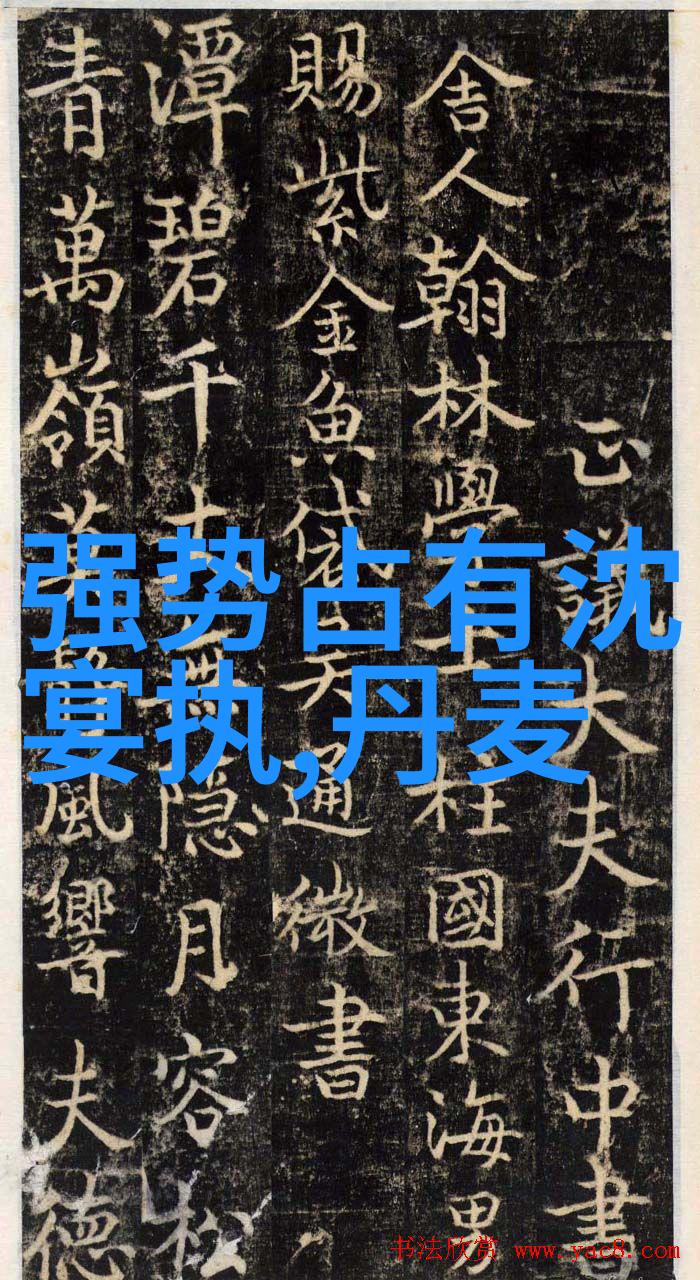 强势占有沈
宴执,丹麦
正議大夫行中書
舍人翰林學士柱國東海男
賜紫金魚袋吴通微書
潭碧千丈無隐月容松
青萬嶺風響夫德
书法欣赏 www.yac8.com